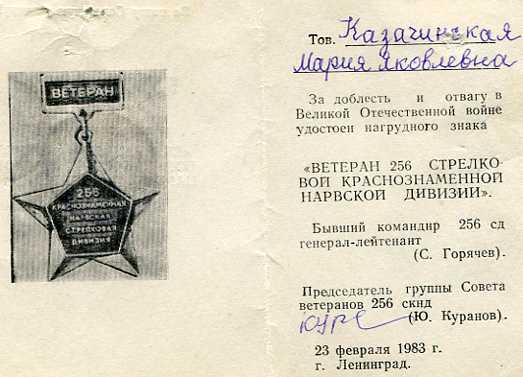 ВЕТЕРАН
256
КРАСНОЗНАМЕННАЯ
НАРВСКАЯ
СТРЕЛКОВАЯ
ДИВИЗИЯ
Тов. Казачинская
Мария Яковлевна
За доблесть и отвагу в
Великой Отечественной войне
удостоен нагрудного знака
«ВЕТЕРАН 256 СТРЕЛКО-
ВОЙ КРАСНОЗНАМЕННОЙ
НАРВСКОЙ ДИВИЗИИ».
Бывший командир 256 сд
генерал-лейтенант
(С. Горячев).
Председатель группы Совета
ветеранов 256 скнд
(Ю. Куранов).
23 февраля 1983 г.
г. Ленинград.